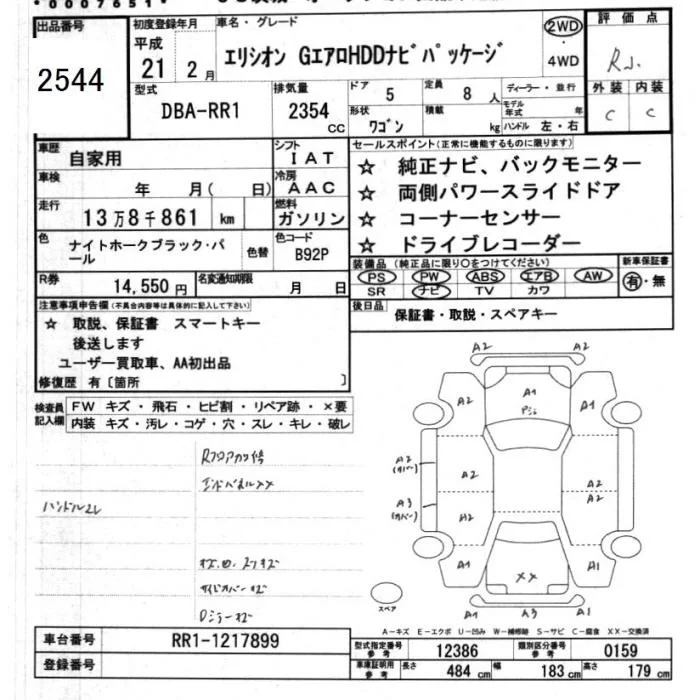 *0007651*
出品番号
2544
初度登録年月
平成
21年 2月
車名・グレード
エリシオン GエアロHDDナビパッケージ
2WD
・
4WD
評価点
R J.
外装 内装
C C
型式
DBA-RR1
排気量
2354 CC
ドア 5
定員 8 人
形状 ワゴン
積載 kg
ディーラー・並行
モデル年式 年
ハンドル 左・右
車歴
自家用
シフト
IAT
車検
年 月( 日)
冷房
AAC
走行
13万8千861 km
燃料
ガソリン
色
ナイトホークブラック・パール
色替
色コード
B92P
R券
14,550円
名変通知期限
月 日
セールスポイント(正常に機能するものに限ります)
☆ 純正ナビ、バックモニター
☆ 両側パワースライドドア
☆ コーナーセンサー
☆ ドライブレコーダー
装備品 (純正品に限り○をつけてください)
PS PW ABS エアB AW
SR ナビ TV カワ
新車保証書
有・無
後日品
保証書・取説・スペアキー
注意事項申告欄(不具合内容等は具体的に記入して下さい)
☆ 取説、保証書 スマートキー
後送します
ユーザー買取車、AA初出品
修復歴 有〔箇所 〕
検査員記入欄
FW キズ・飛石・ヒビ割・リペア跡・×要
内装 キズ・汚レ・コゲ・穴・スレ・キレ・破レ
RフロアカツギX
エンドパネルXX
ハンドルスレ
サイドカバーキズ
A2 A2
A2 A1 A1
A2
(カバー)
A2 A2
A2
A3
(カバー)
A2
A1 XX A1
A2 A3 A1
スペア
A-キズ E-エクボ U-凹み W-補修跡 S-サビ C-腐食 XX-交換済
車台番号
RR1-1217899
登録番号
型式指定番号 参考
12386
類別区分番号 参考
0159
車庫証明用 参考
長さ 484 cm
幅 183 cm
高さ 179 cm